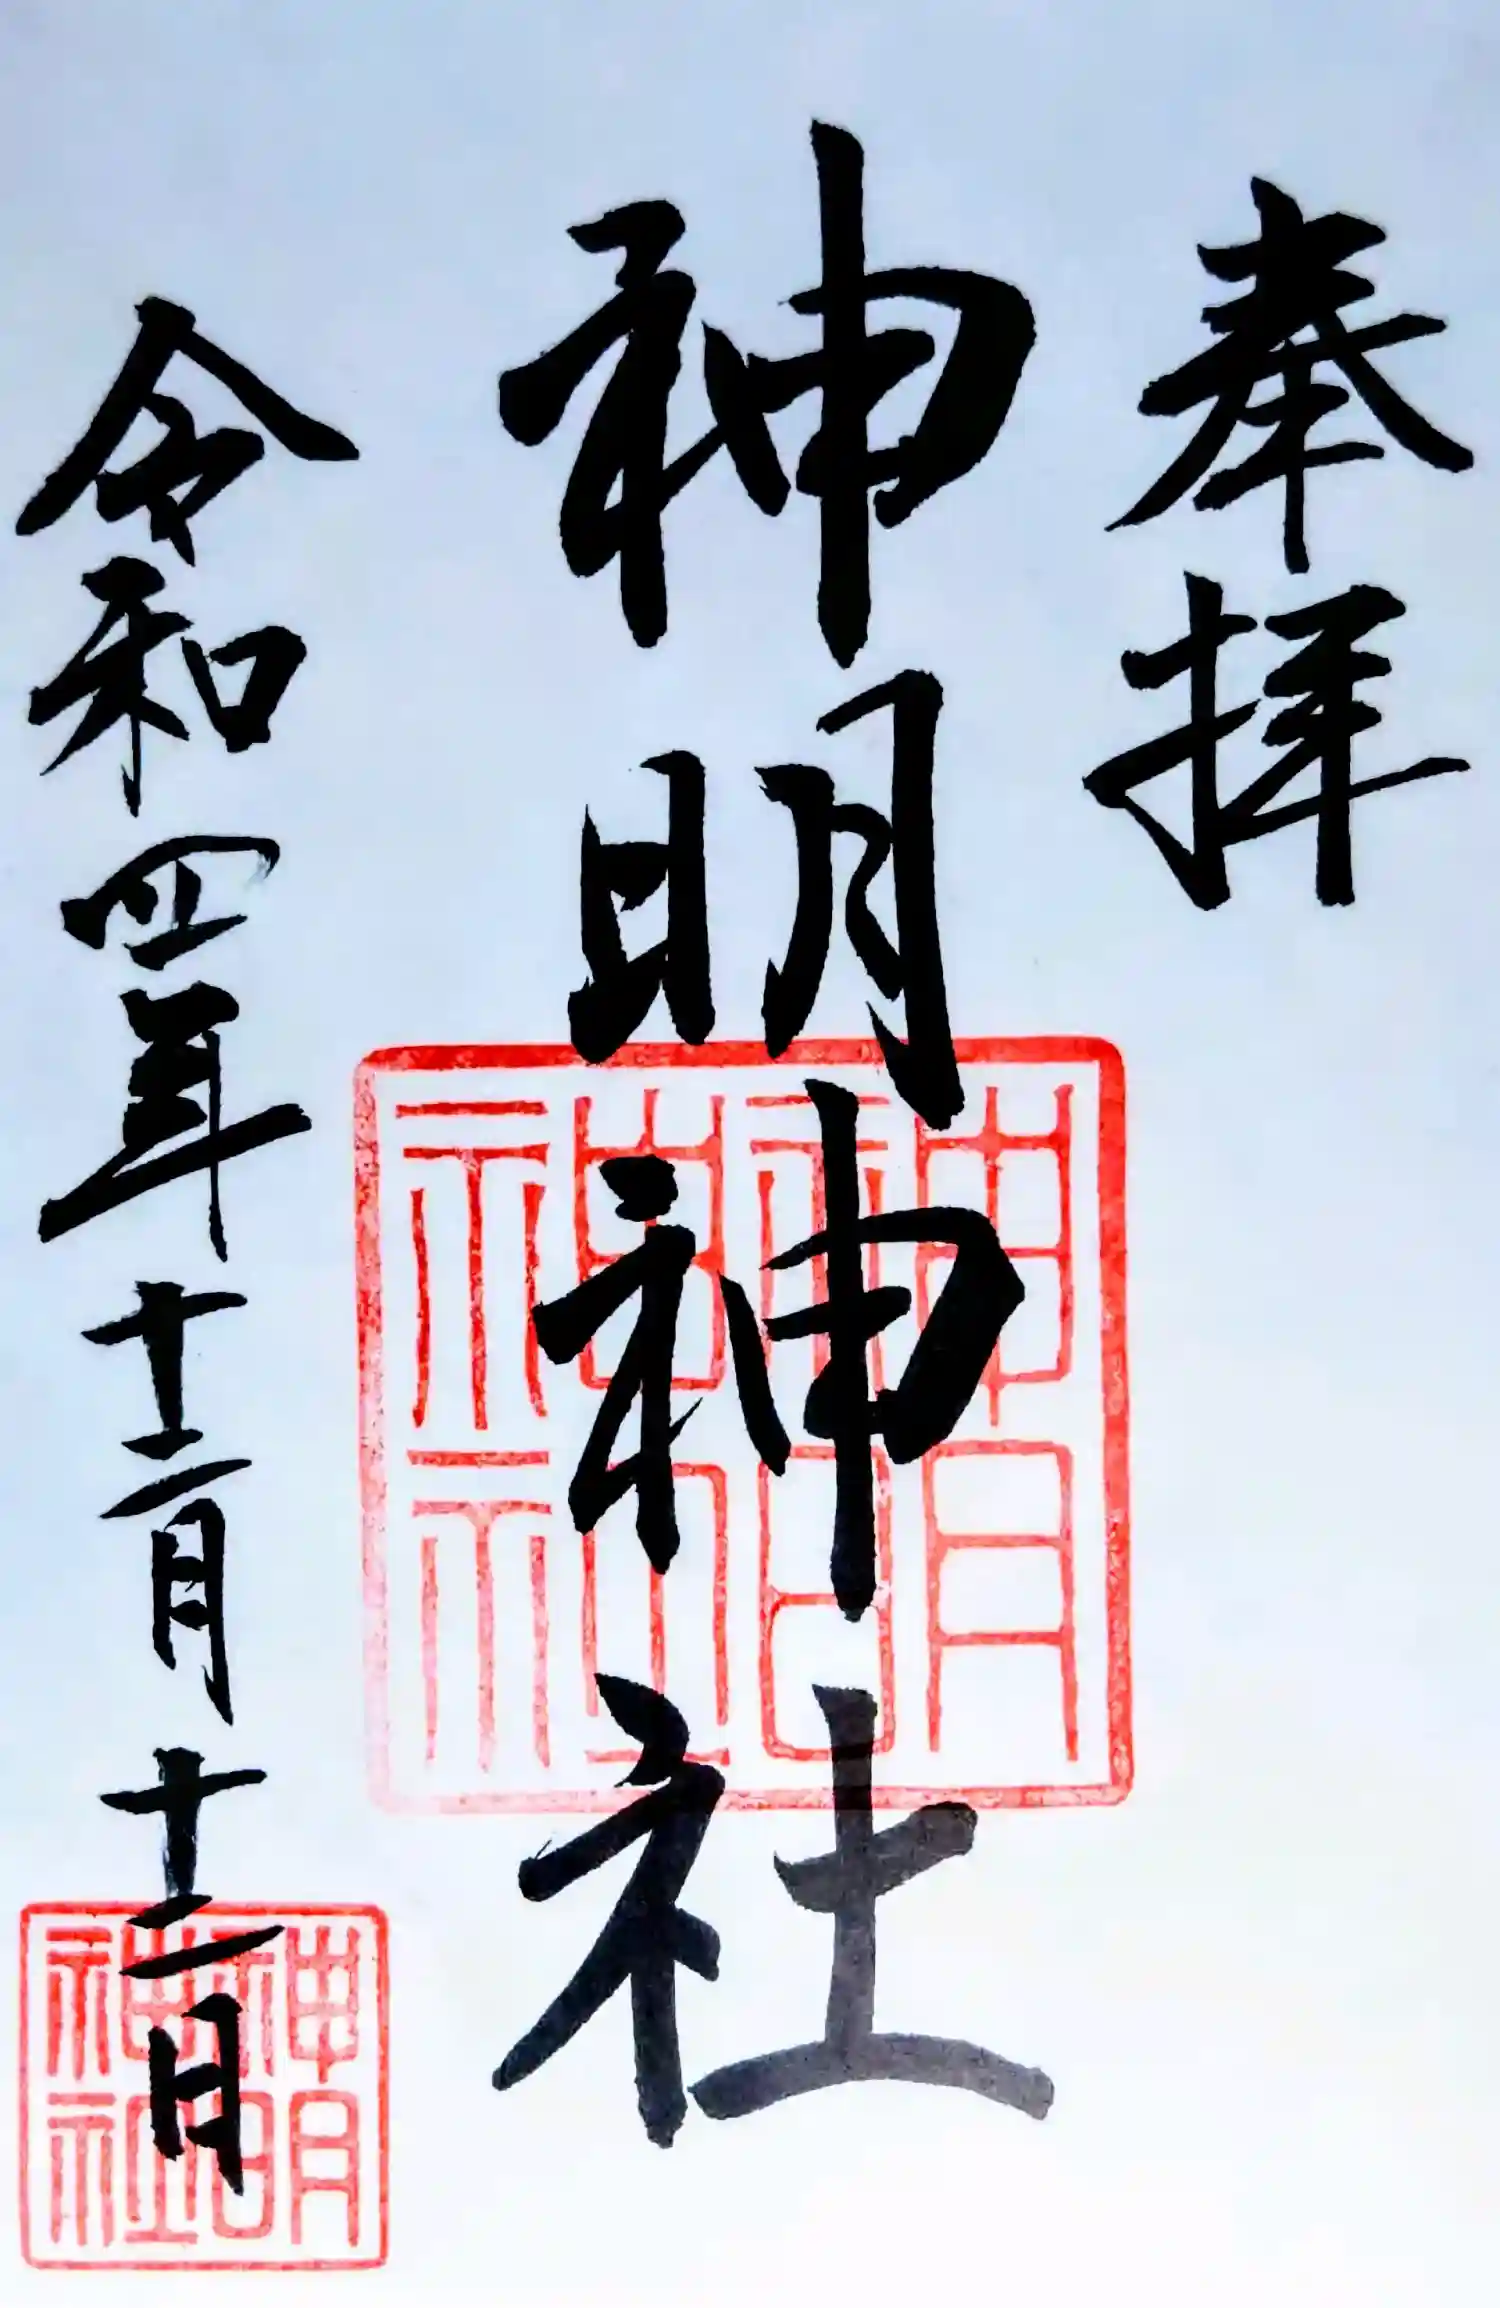 奉拝
神明神社
令和四年十二月十二日
神明
神社
神明
神社